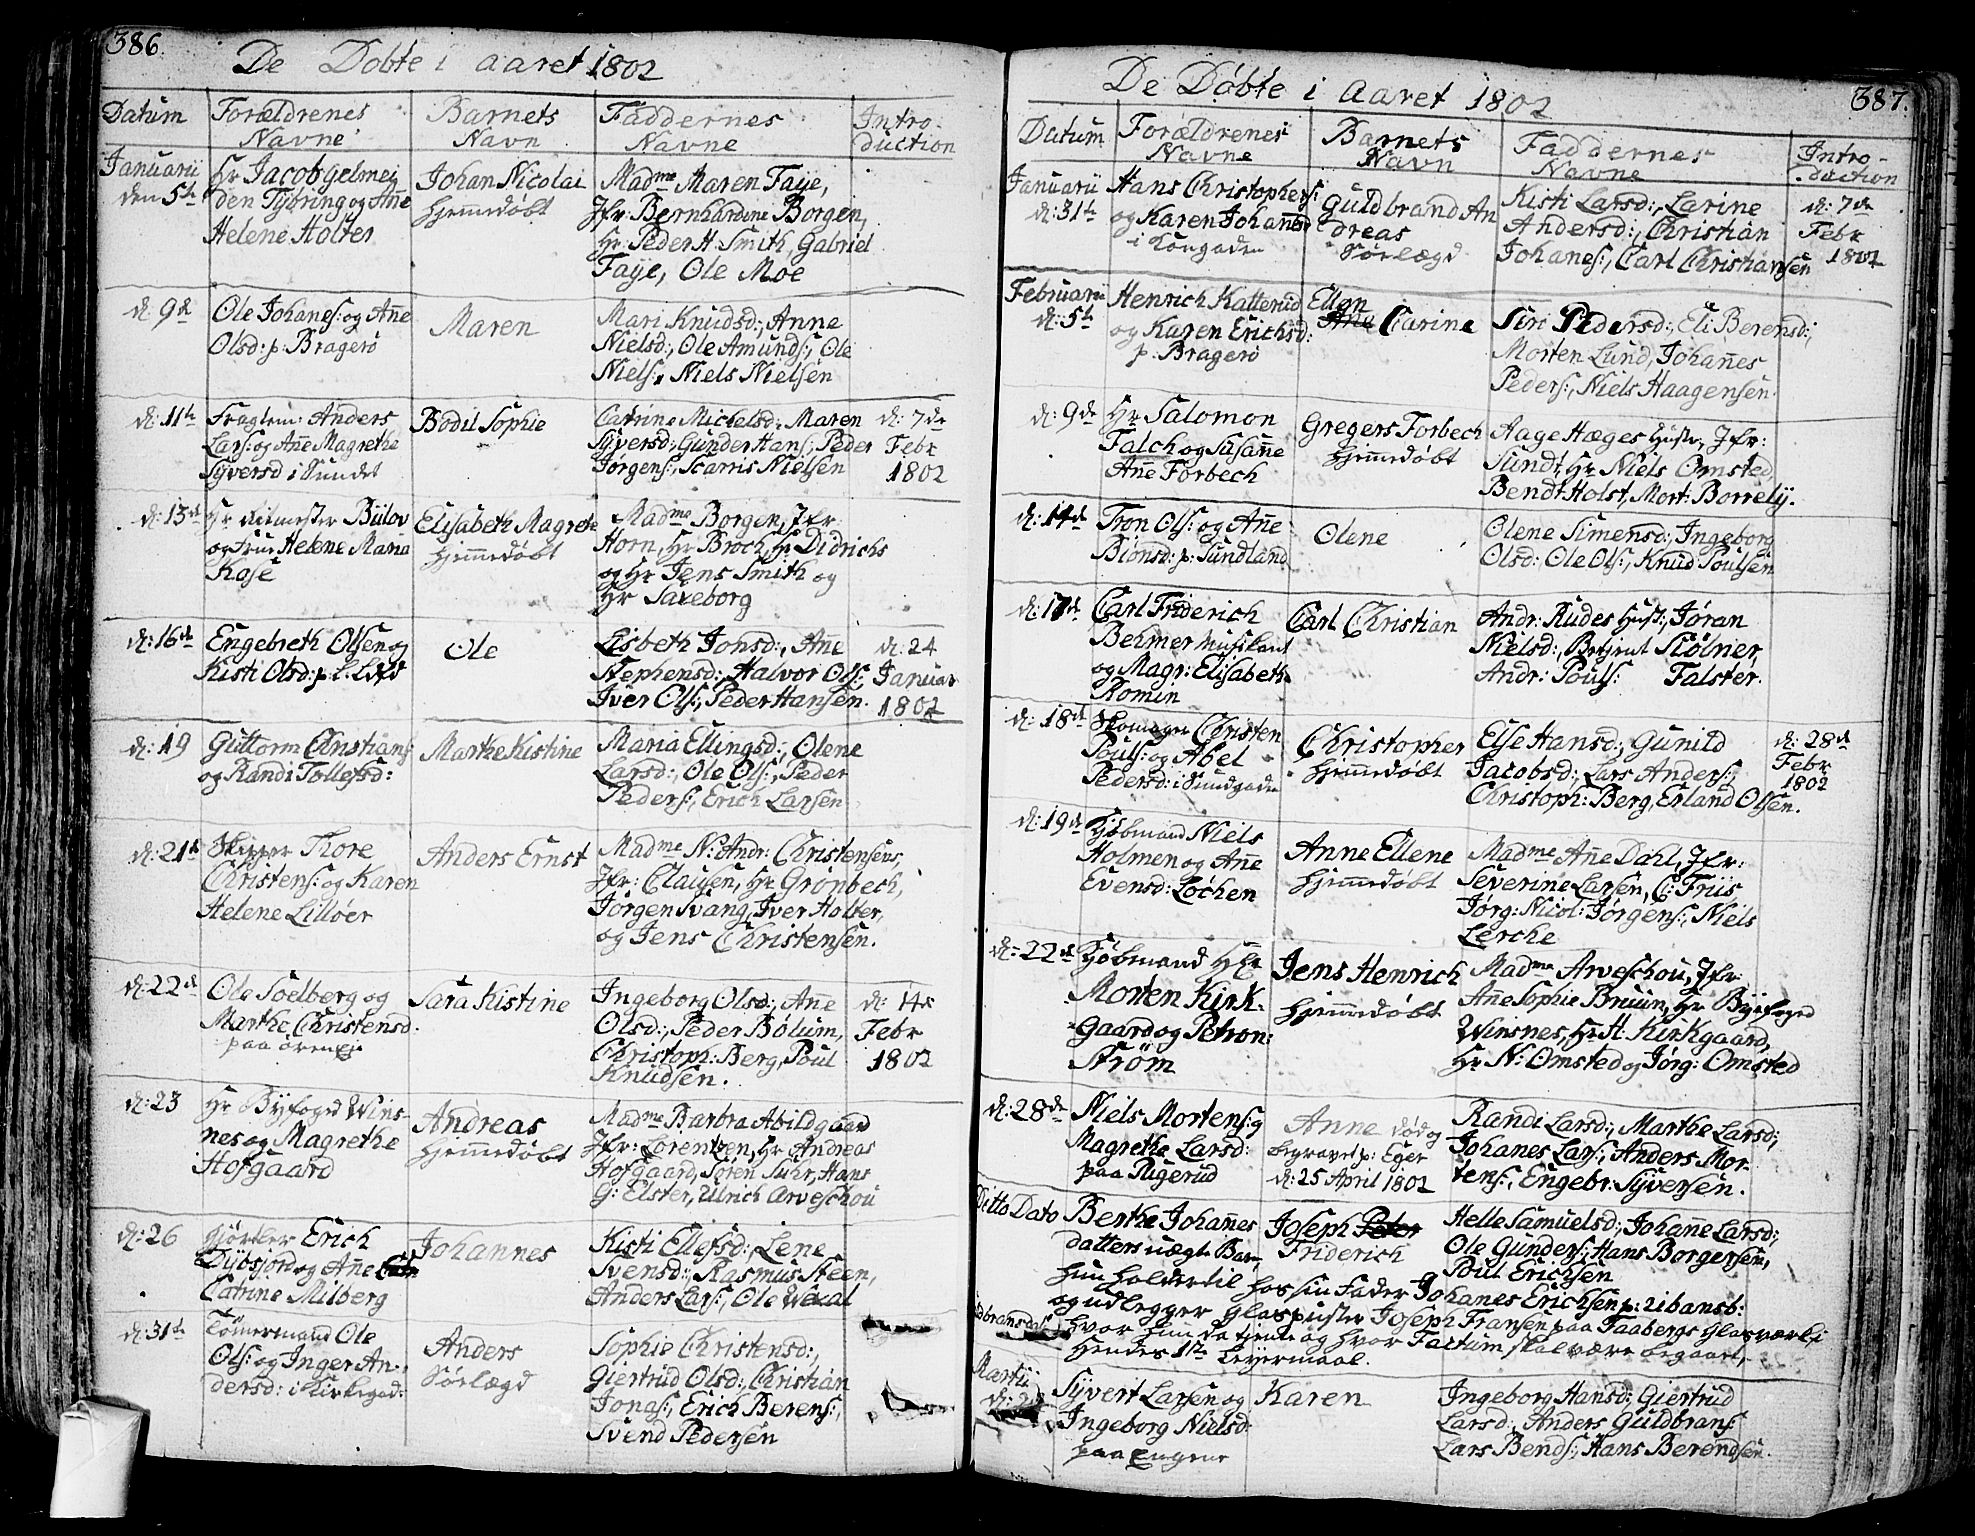 386.
De Døbte i aaret 1802
Datum
Forældrenes
Navne
Barnets
Navn
Faddernes
Navne
Intro-
duction
Januarii
den 5te
Hr Jacob Gelmei
den Tybring og Ane
Helene Holter
Johan Nicolai
hjemmedøbt
Madme Maren Faÿe,
Jfr: Bernhardine Borgen,
Hr Peder H Smith, Gabriel
Faÿe, Ole Moe
d: 9de
Ole Johanes: og Ane
Olsd: p: Bragerø
Maren
Mari Knudsd:, Anne
Nielsd:, Ole Amunds:, Ole
Niels:, Niels Nielsen
d: 11te
Anders
Lars: og Ane Magrethe
Syversd i Sundet
Bodil Sophie
Catrine Michelsd:, Maren
Syversd:, Gunder Hans:, Peder
Jørgens:, Scarris Nielsen
d: 7de
Febr
1802
d: 13de
Hr Ritmester Bülov
og Frue Helene Maria
Kose
Elisabeth Magrete
hjemmedøbt
Madme Borgen, Jfr
Horn, Hr Broch, Hr Didrichs
og Hr Jens Smith og
Hr Saxeborg
d: 16de
Engebreth Olsen og
Kisti Olsd: p:
Ole
Lisbeth Jonsd:, Ane
Stephensd:, Halvor Ols:
Iver Ols:, Peder Hansen.
d: 24
Januar
1802
d: 19
Guttorm Christians:
og Randi Tollefsd:
Marthe Kistine
Maria Ellingsd:, Olene
Larsd:, Ole Ols:, Peder
Peders:, Erich Larsen
d: 21de
Skipper Thore
Christens: og Karen
Helene Lilløer
Anders Ernst
Madme N: Andr: Christensens,
Jfr: Clausen, Hr Grønbech,
Jørgen Svang, Iver Holter,
og Jens Christensen.
d: 22de
Ole Soelberg og
Marthe Christensd.
paa øren
Sara Kistine
Ingeborg Olsd:, Ane
Olsd:, Peder Bølum,
Christoph: Berg, Poul
Knudsen.
d: 14de
Febr
1802
d: 23
Hr Byfoged Wins-
nes og Magrethe
Hofgaard
Andreas
hjemmedøbt
Madme Barbra Abildgaard
Jfr: Lorentzen, Hr Andreas
Hofgaard, Søren Suhr, Hans
G: Elster, Ulrich Arveschou
d: 26
Erich
Dybsjord og Ane
Catrine Milberg
Johannes
Kisti Ellefsd:, Lene
Svensd:, Rasmus Steen,
Anders Lars:, Ole Wexal
d: 31te
Tømermand Ole
Ols: og Inger An-
dersd: i Kirkegad:
Anders
Sørlægd
Sophie Christensd:,
Giertrud Olsd:, Christian
Jonas:, Erich Berens:,
Svend Pedersen
387.
De Døbte i Aaret 1802
Datum
Forældrenes
Navne
Barnets
Navn
Faddernes
Navne
Intro-
duction
Januarii
d: 31te
Hans Christophers:
og Karen Johanesd
i Kongaden
Guldbrand An
dreas
Sørlægd
Kisti Larsd:, Larine
Andersd:, Christian
Johanes:, Carl Christiansen
d: 7de
Febr
1802
Februarii
d: 5te
Henrich Katterud
og Karen Erichsd:
p: Bragerø
Ellen
Ane Carine
Siri Pedersd:, Eli Berensd:,
Morten Lund, Johanes
Peders:, Niels Haagensen.
d: 9de
Hr Salomon
Falch og Susane
Ane Forbech
Gregers Forbech
hjemmedøbt
Aage Hæges Hustr, Jfr:
Sundt, Hr Niels Omsted,
Bendt Holst, Mort: Borrely.
d: 14de
Tron Ols: og Ane
Biønsd: p: Sundland
Olene
Olene Simensd:, Ingeborg
Olsd:, Ole Ols:, Knud Poulsen
d: 17de
Carl Friderich
Behmer Musikant
og Magr: Elisabeth
Romin
Carl Christian
Andr: Rudes Hust:, Jøran
Nielsd:, Stølner
Andr: Pouls: Falster.
d: 18de
Skomager Christen
Pouls: og Abel
Pedersd: i Sundgaden
Christopher
hjemmedøbt
Else Hansd:, Gunild
Jacobsd:, Lars Anders:,
Christoph: Berg, Erland Olsen.
d: 28de
Febr
1802
d: 19de
Kjøbmand Niels
Holmen og Ane
Evensd: Løchen
Anne Ellene
hjemmedøbt
Madme Ane Dahl, Jfr:
Severine Larsen, C: Friis
Jørg: Nicol: Jørgens:, Niels
Lerche
d: 22de
Kjøbmand Hr
Morten Kirk-
gaard og Petron:
Strøm
Jens Henrich
hjemmedøbt
Madme Arveschou, Jfr:
Ane Sophie Bruun, Hr Byefoged
Winsnes, Hr H: Kirkgaard,
Hr N: Omsted og Jørg: Omsted
d: 28de
Niels Mortens: og
Magrethe Larsd:
paa Rigerud
Anne død og
begravet p: Eger
d: 25 April 1802
Randi Larsd:, Marthe Larsd:,
Johanes Lars:, Anders Mor-
tens:, Engebr: Syversen.
Ditto Dato
Berthe Johanes
datters uægte Barn,
Joseph Peter
Friderich
Helle Samuelsd:, Johane Larsd:,
Ole Gunders:, Hans Borgersen,
Poul Erichsen
hun holder til hos sin Fader Johanes Erichsen p:
og udlegger Glaspuster Joseph Fransen paa Faabergs Glasværk i
hvor hun da tjente og hvor Factum skal være begaaet,
hendes 1ste Leiermaal.
Martii
Syvert Larsen og
Ingeborg Nielsd:
paa Engene
Karen
Ingeborg Hansd:, Giertrud
Larsd:, Anders Guldbrans:
Lars Bends:, Hans Berendsen.